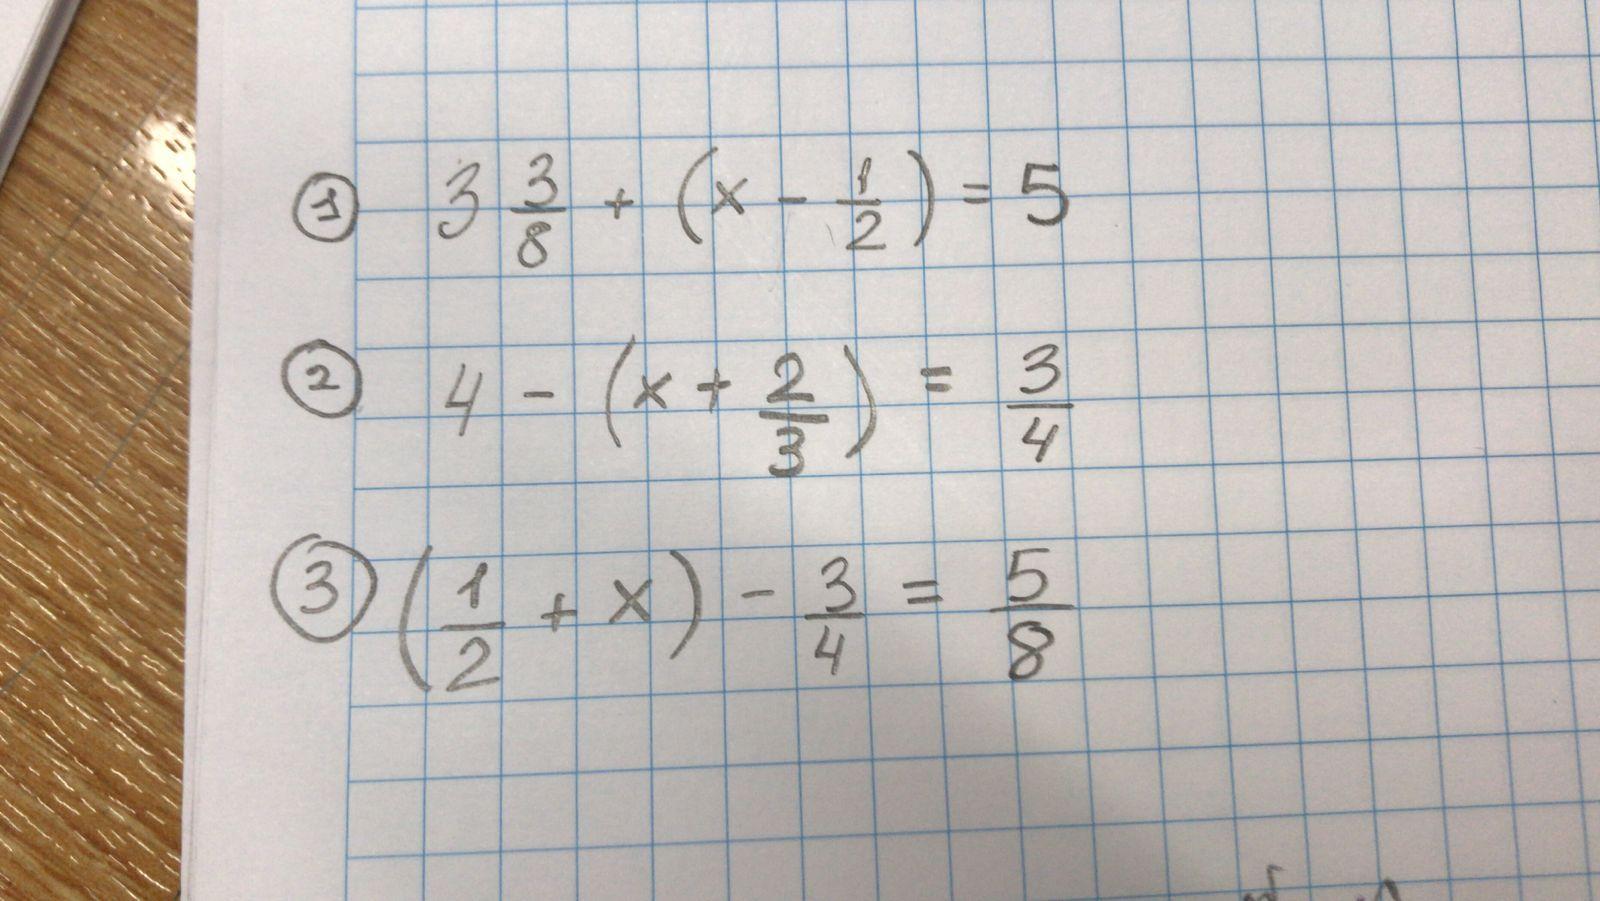 ① 3 3/8 + (x - 1/2) = 5
② 4 - (x + 2/3) = 3/4
③ (1/2 + x) - 3/4 = 5/8